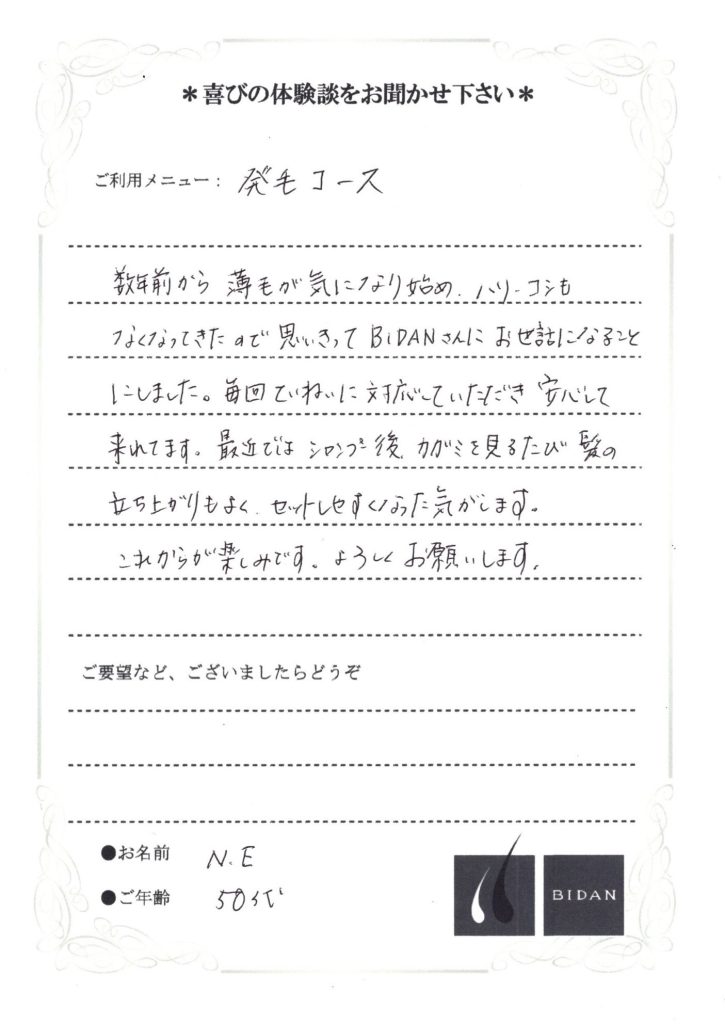 ＊喜びの体験談をお聞かせ下さい＊
ご利用メニュー： 発毛コース
数年前から 薄毛が気になり始め、ハリ・コシも
なくなってきたので 思いきって BiDANさんに お世話になること
にしました。毎回ていねいに 対応していただき 安心して
来れてます。最近では シャンプー後、カガミを見るたび 髪の
立ち上がりもよく、セットしやすくなった気がします。
これからが楽しみです。よろしくお願いします。
ご要望など、ございましたらどうぞ
●お名前 N.E
●ご年齢 50代
BIDAN